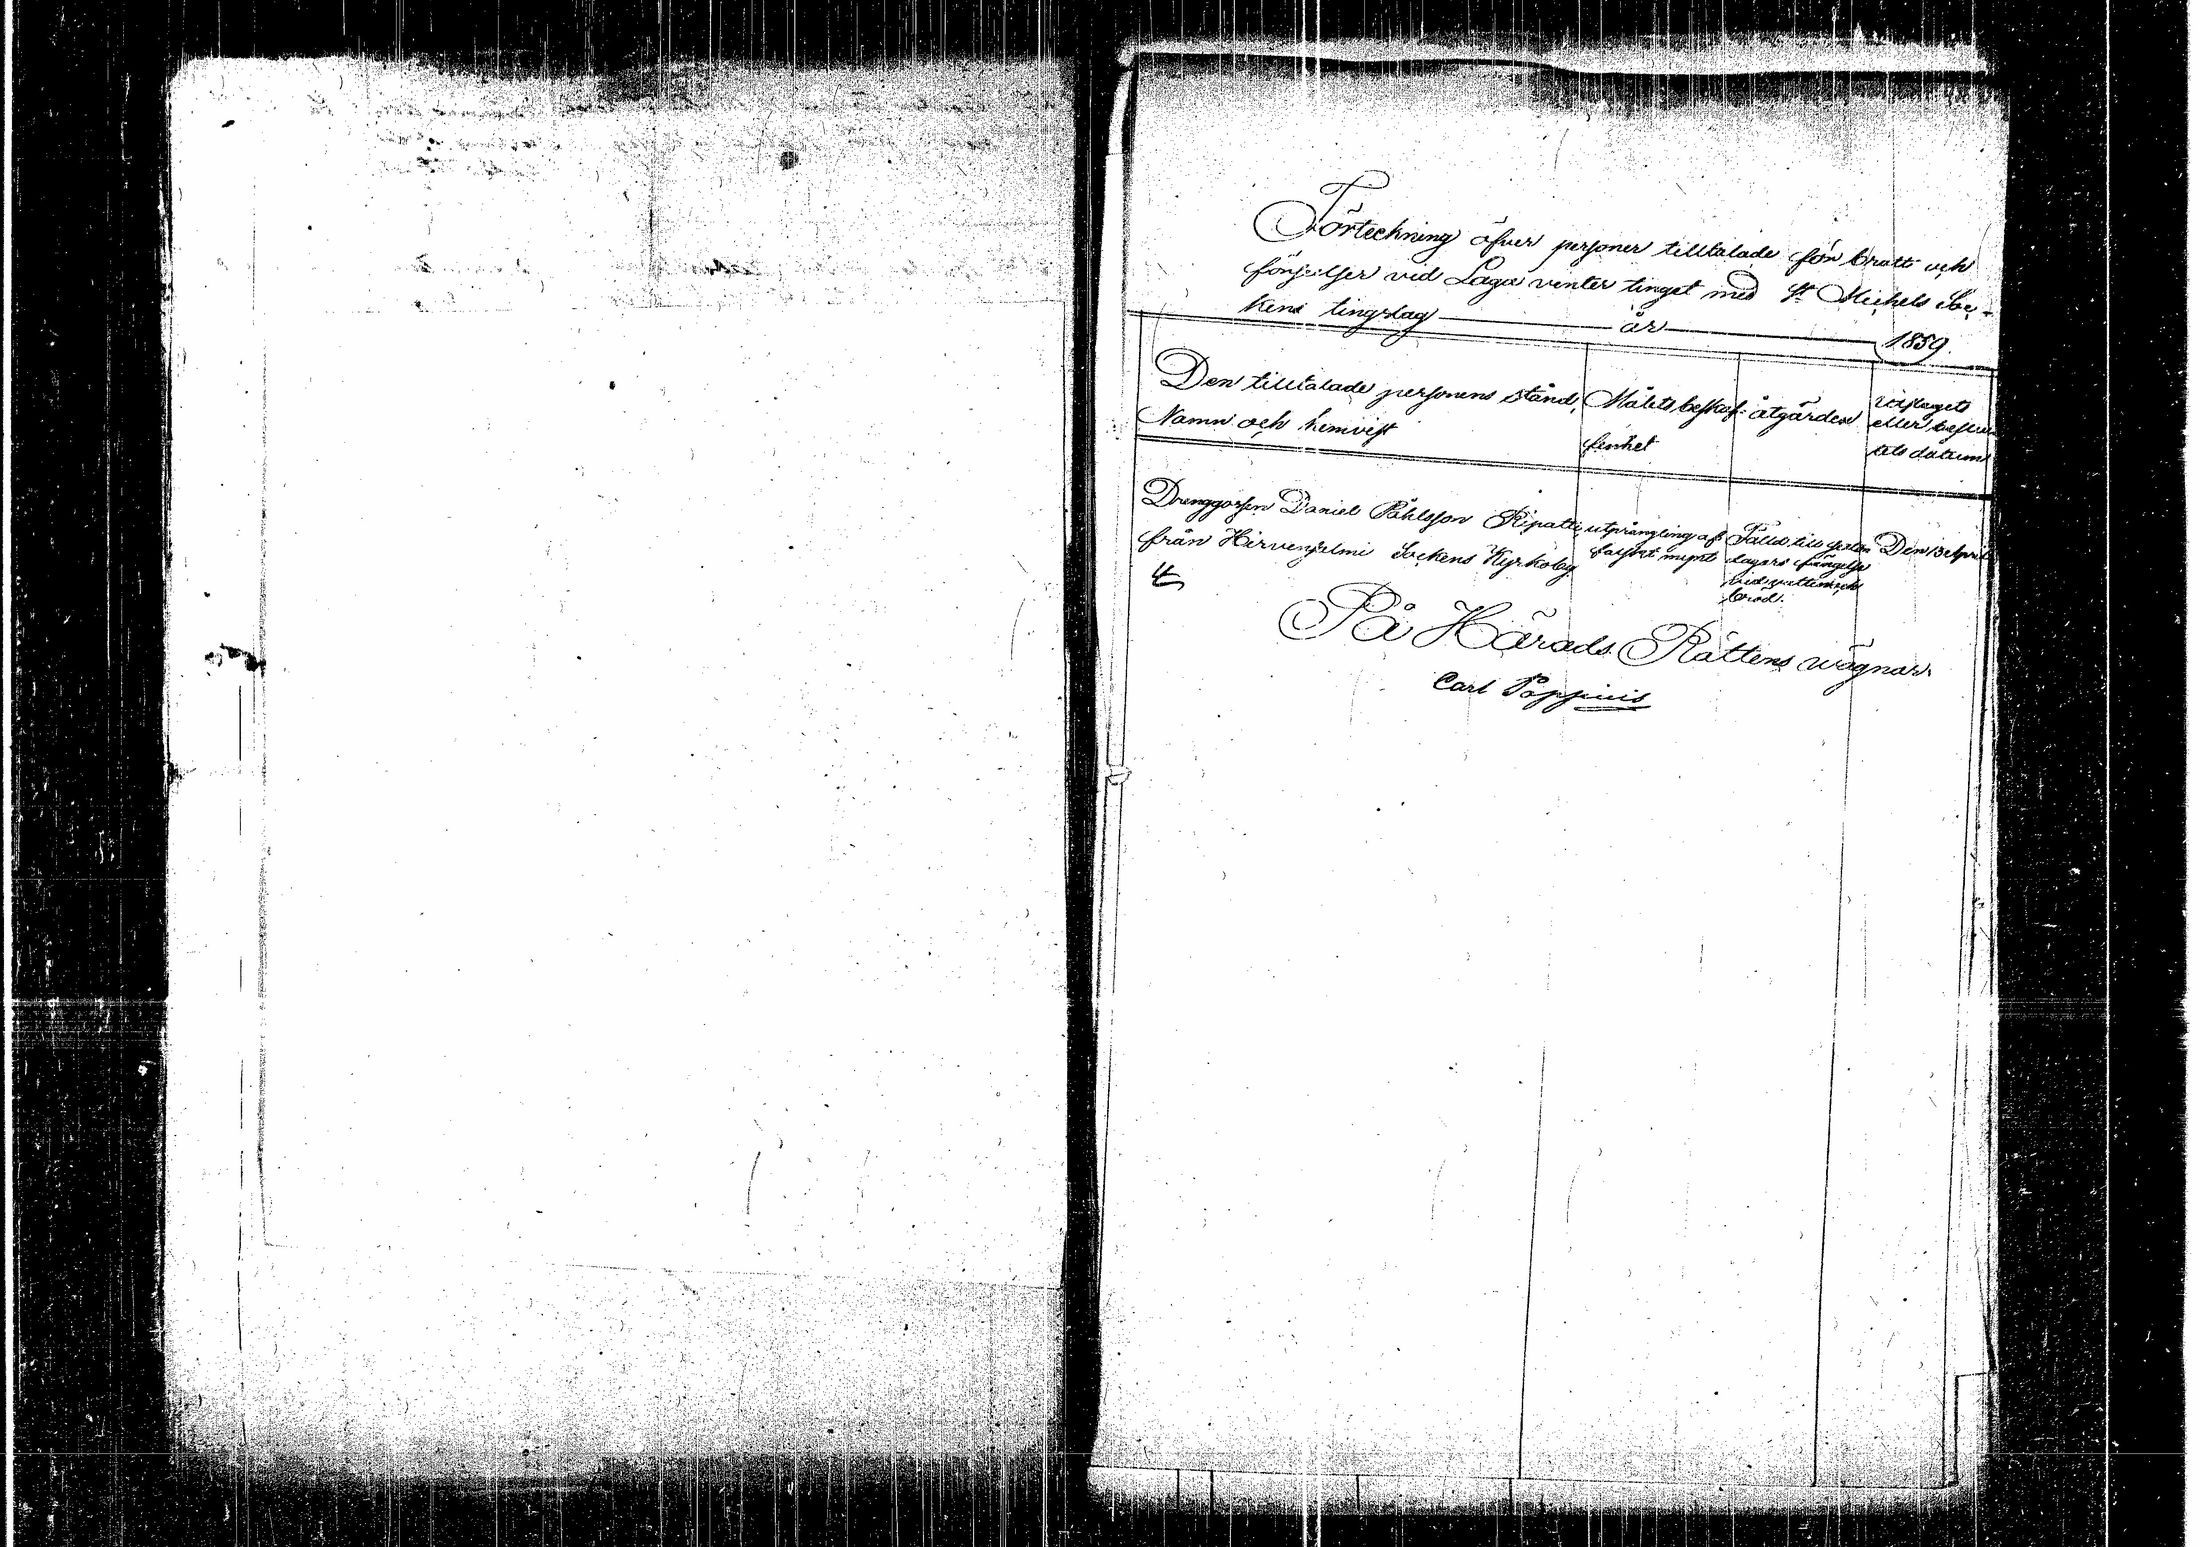 Förteckning öfver personer tilltalade för brott och
förseelser vid Laga vinter tinget med St Michels Soc-
kens tingslag år 1859.
Den tilltalade personens stånd,
Namn och hemvist
Målets beskaf-
fenhet
åtgärden
Utslagets
eller beslu-
tets datum
Drenggossen Daniel Påhlsson Ripatti
från Hirvensalmi Sockens Kyrkoby
utprångling af
falskt mynt
Fälld till
dagars fängelse
vid vatten och
bröd.
Den 13 April
På Härads Rättens wägnar
Carl Poppius